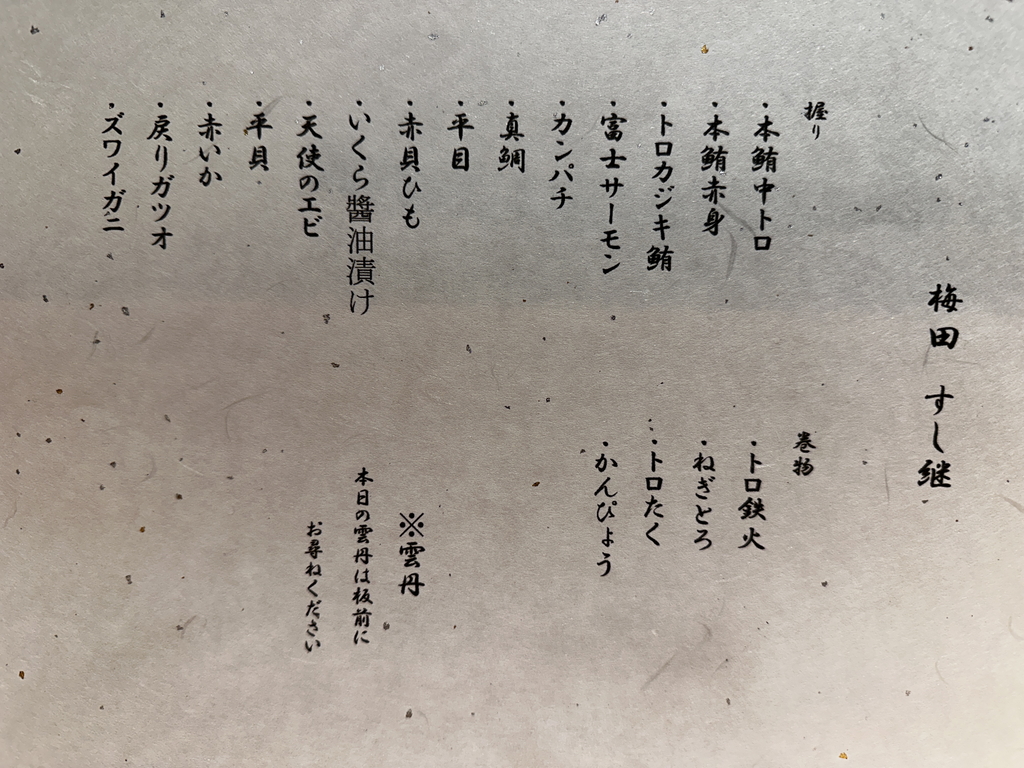 梅田 すし継
握り
・本鮪中トロ
・本鮪赤身
・トロカジキ鮪
・富士サーモン
・カンパチ
・真鯛
・平目
・赤貝ひも
・いくら醬油漬け
・天使のエビ
・平貝
・赤いか
・戻りガツオ
・ズワイガニ
巻物
・トロ鉄火
・ねぎとろ
・トロたく
・かんぴょう
※雲丹
本日の雲丹は板前に
お尋ねください